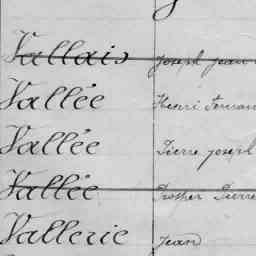 Vallais Joseph Jean
Vallée Henri Fernan
Vallée Pierre Joseph
Vallée Prosper Pierre
Vallerie Jean